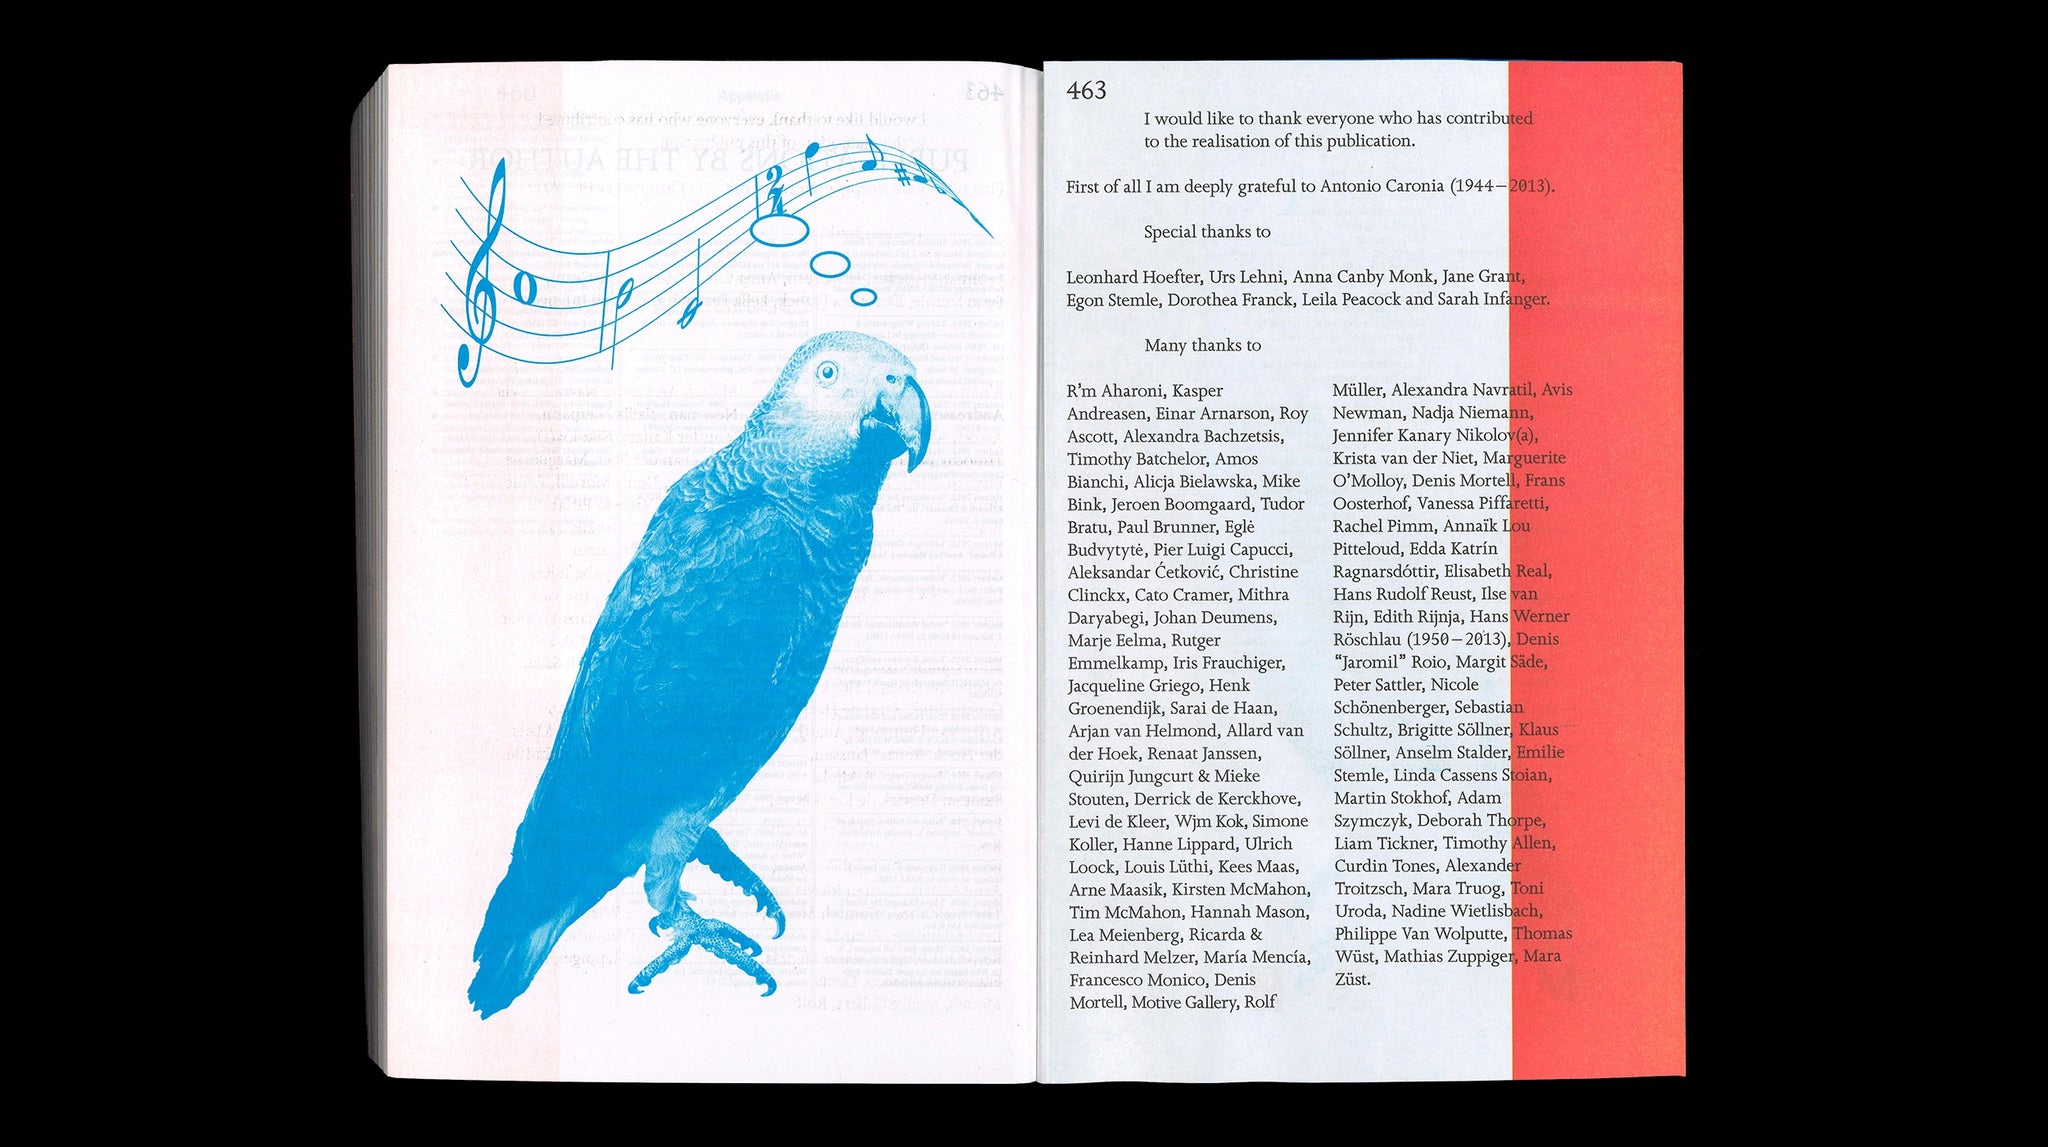 463
I would like to thank everyone who has contributed
to the realisation of this publication.
First of all I am deeply grateful to Antonio Caronia (1944–2013).
Special thanks to
Leonhard Hoefter, Urs Lehni, Anna Canby Monk, Jane Grant,
Egon Stemle, Dorothea Franck, Leila Peacock and Sarah Infanger.
Many thanks to
R’m Aharoni, Kasper
Andreasen, Einar Arnarson, Roy
Ascott, Alexandra Bachzetsis,
Timothy Batchelor, Amos
Bianchi, Alicja Bielawska, Mike
Bink, Jeroen Boomgaard, Tudor
Bratu, Paul Brunner, Eglė
Budvytytė, Pier Luigi Capucci,
Aleksandar Ćetković, Christine
Clinckx, Cato Cramer, Mithra
Daryabegi, Johan Deumens,
Marje Eelma, Rutger
Emmelkamp, Iris Frauchiger,
Jacqueline Griego, Henk
Groenendijk, Sarai de Haan,
Arjan van Helmond, Allard van
der Hoek, Renaat Janssen,
Quirijn Jungcurt & Mieke
Stouten, Derrick de Kerckhove,
Levi de Kleer, Wjm Kok, Simone
Koller, Hanne Lippard, Ulrich
Loock, Louis Lüthi, Kees Maas,
Arne Maasik, Kirsten McMahon,
Tim McMahon, Hannah Mason,
Lea Meienberg, Ricarda &
Reinhard Melzer, María Mencía,
Francesco Monico, Denis
Mortell, Motive Gallery, Rolf
Müller, Alexandra Navratil, Avis
Newman, Nadja Niemann,
Jennifer Kanary Nikolov(a),
Krista van der Niet, Marguerite
O’Molloy, Denis Mortell, Frans
Oosterhof, Vanessa Piffaretti,
Rachel Pimm, Annaïk Lou
Pitteloud, Edda Katrín
Ragnarsdóttir, Elisabeth Real,
Hans Rudolf Reust, Ilse van
Rijn, Edith Rijnja, Hans Werner
Röschlau (1950–2013), Denis
“Jaromil” Roio, Margit Säde,
Peter Sattler, Nicole
Schönenberger, Sebastian
Schultz, Brigitte Söllner, Klaus
Söllner, Anselm Stalder, Emilie
Stemle, Linda Cassens Stoian,
Martin Stokhof, Adam
Szymczyk, Deborah Thorpe,
Liam Tickner, Timothy Allen,
Curdin Tones, Alexander
Troitzsch, Mara Truog, Toni
Uroda, Nadine Wietlisbach,
Philippe Van Wolputte, Thomas
Wüst, Mathias Zuppiger, Mara
Züst.